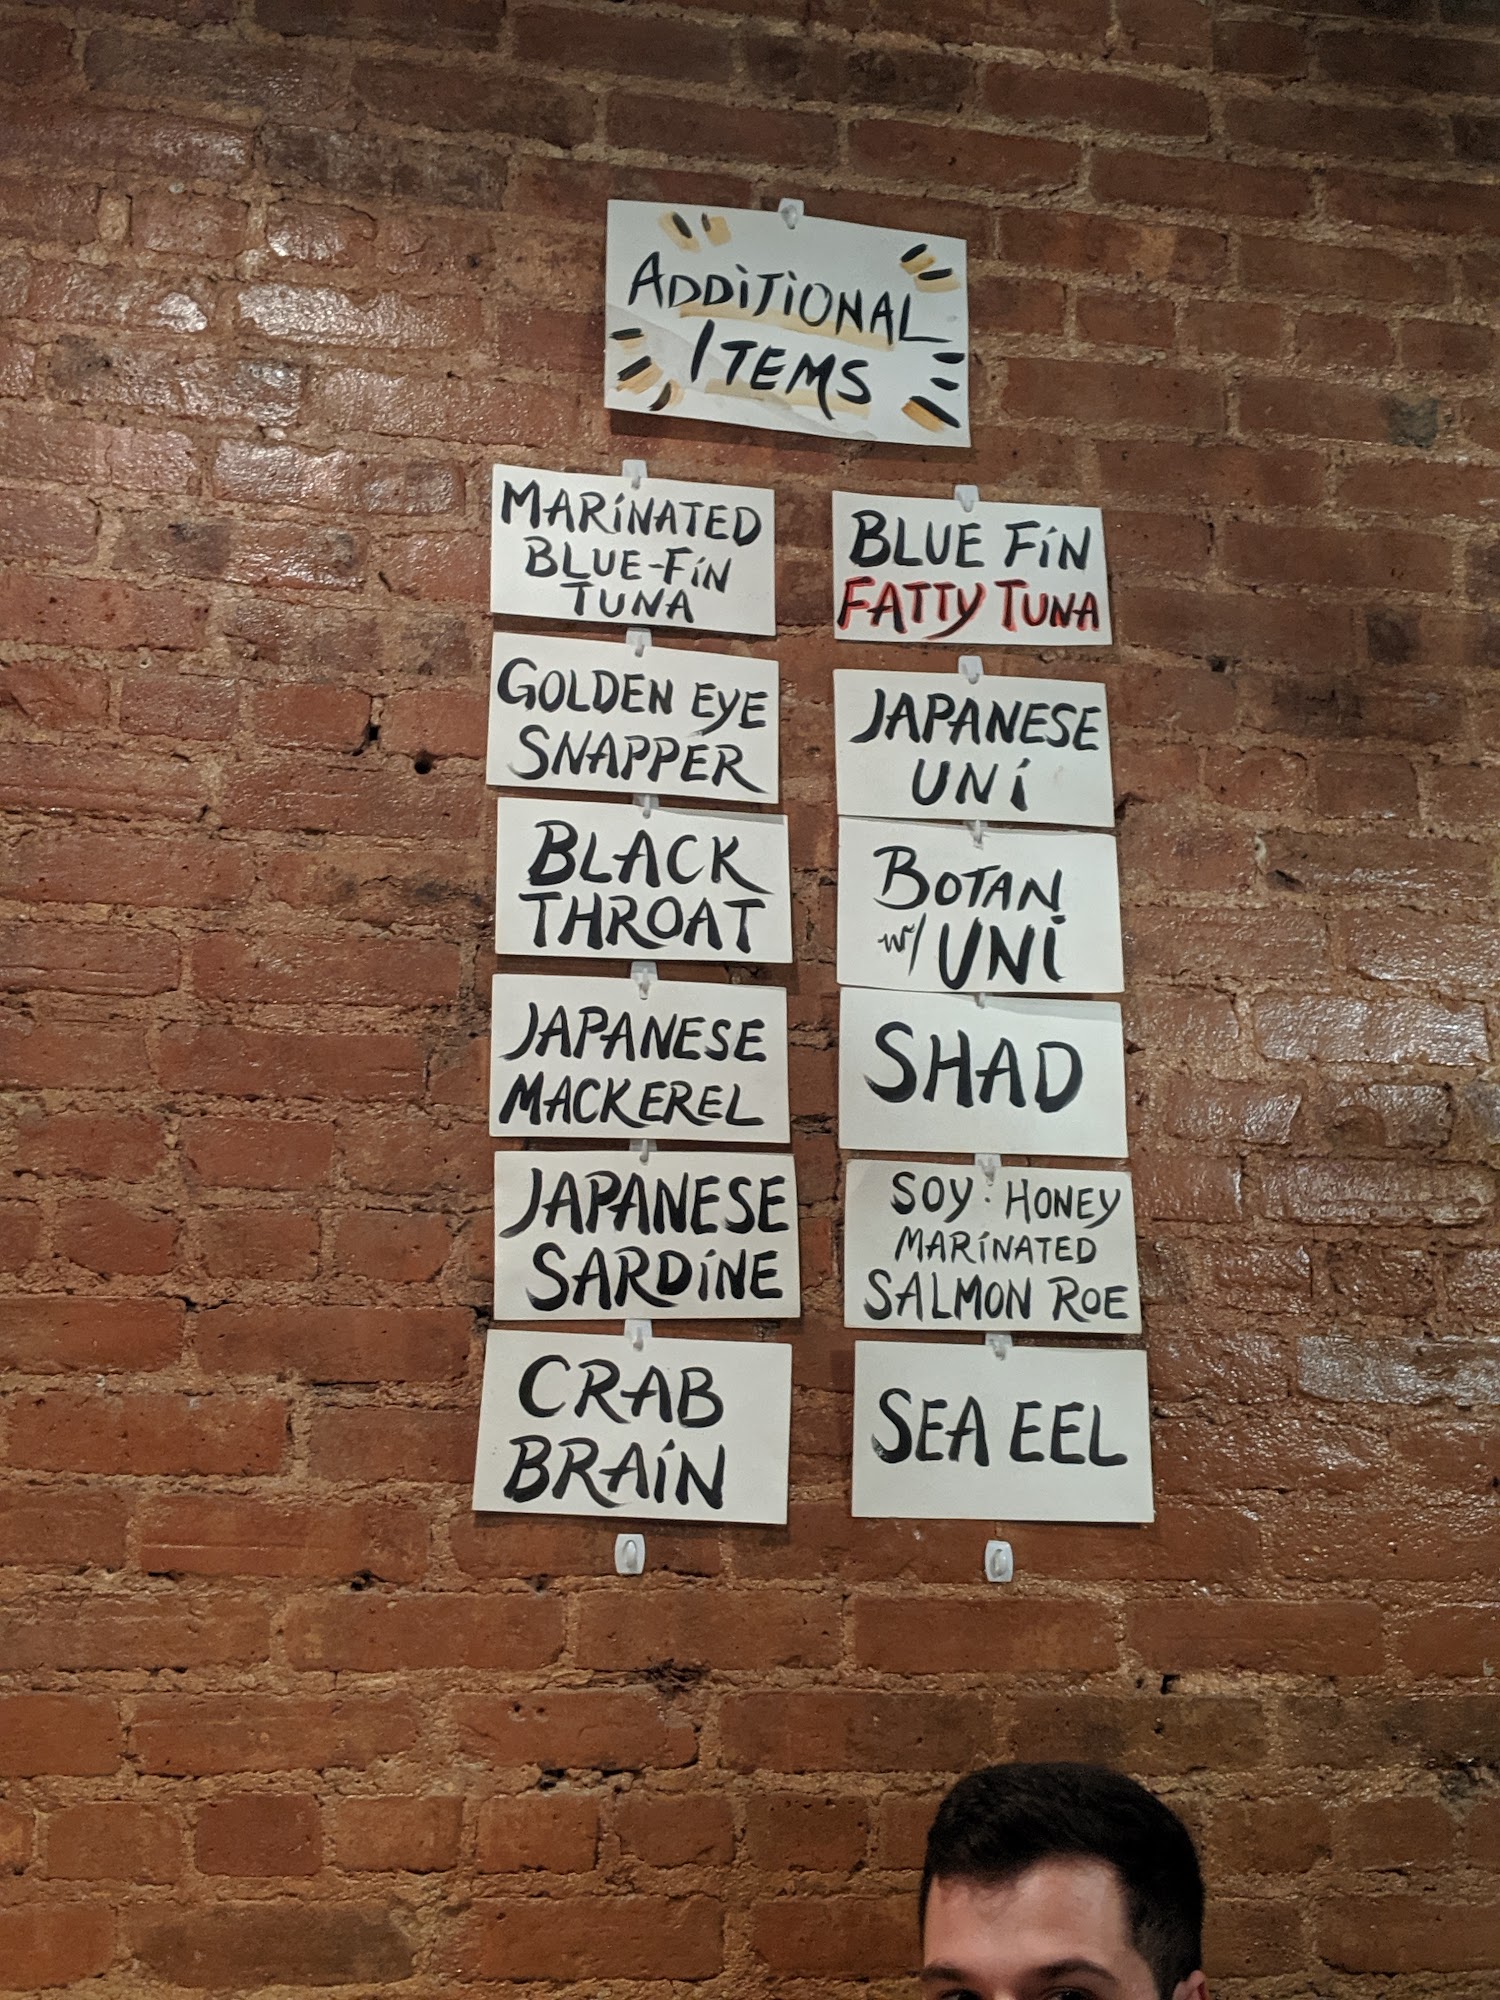 ADDITIONAL
ITEMS
MARINATED
BLUE-FIN
TUNA
GOLDEN EYE
SNAPPER
BLACK
THROAT
JAPANESE
MACKEREL
JAPANESE
SARDINE
CRAB
BRAIN
BLUE FIN
FATTY TUNA
JAPANESE
UNI
BOTAN
w/ UNI
SHAD
SOY · HONEY
MARINATED
SALMON ROE
SEA EEL